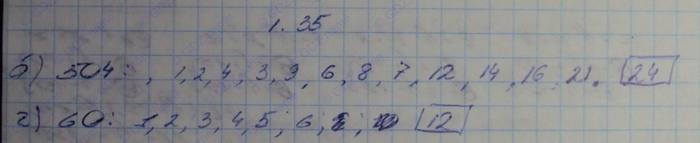 1.35
б) 504: , 1, 2, 4, 3, 9, 6, 8, 7, 12, 14, 16, 21. 24
г) 60: 1, 2, 3, 4, 5, 6, 12